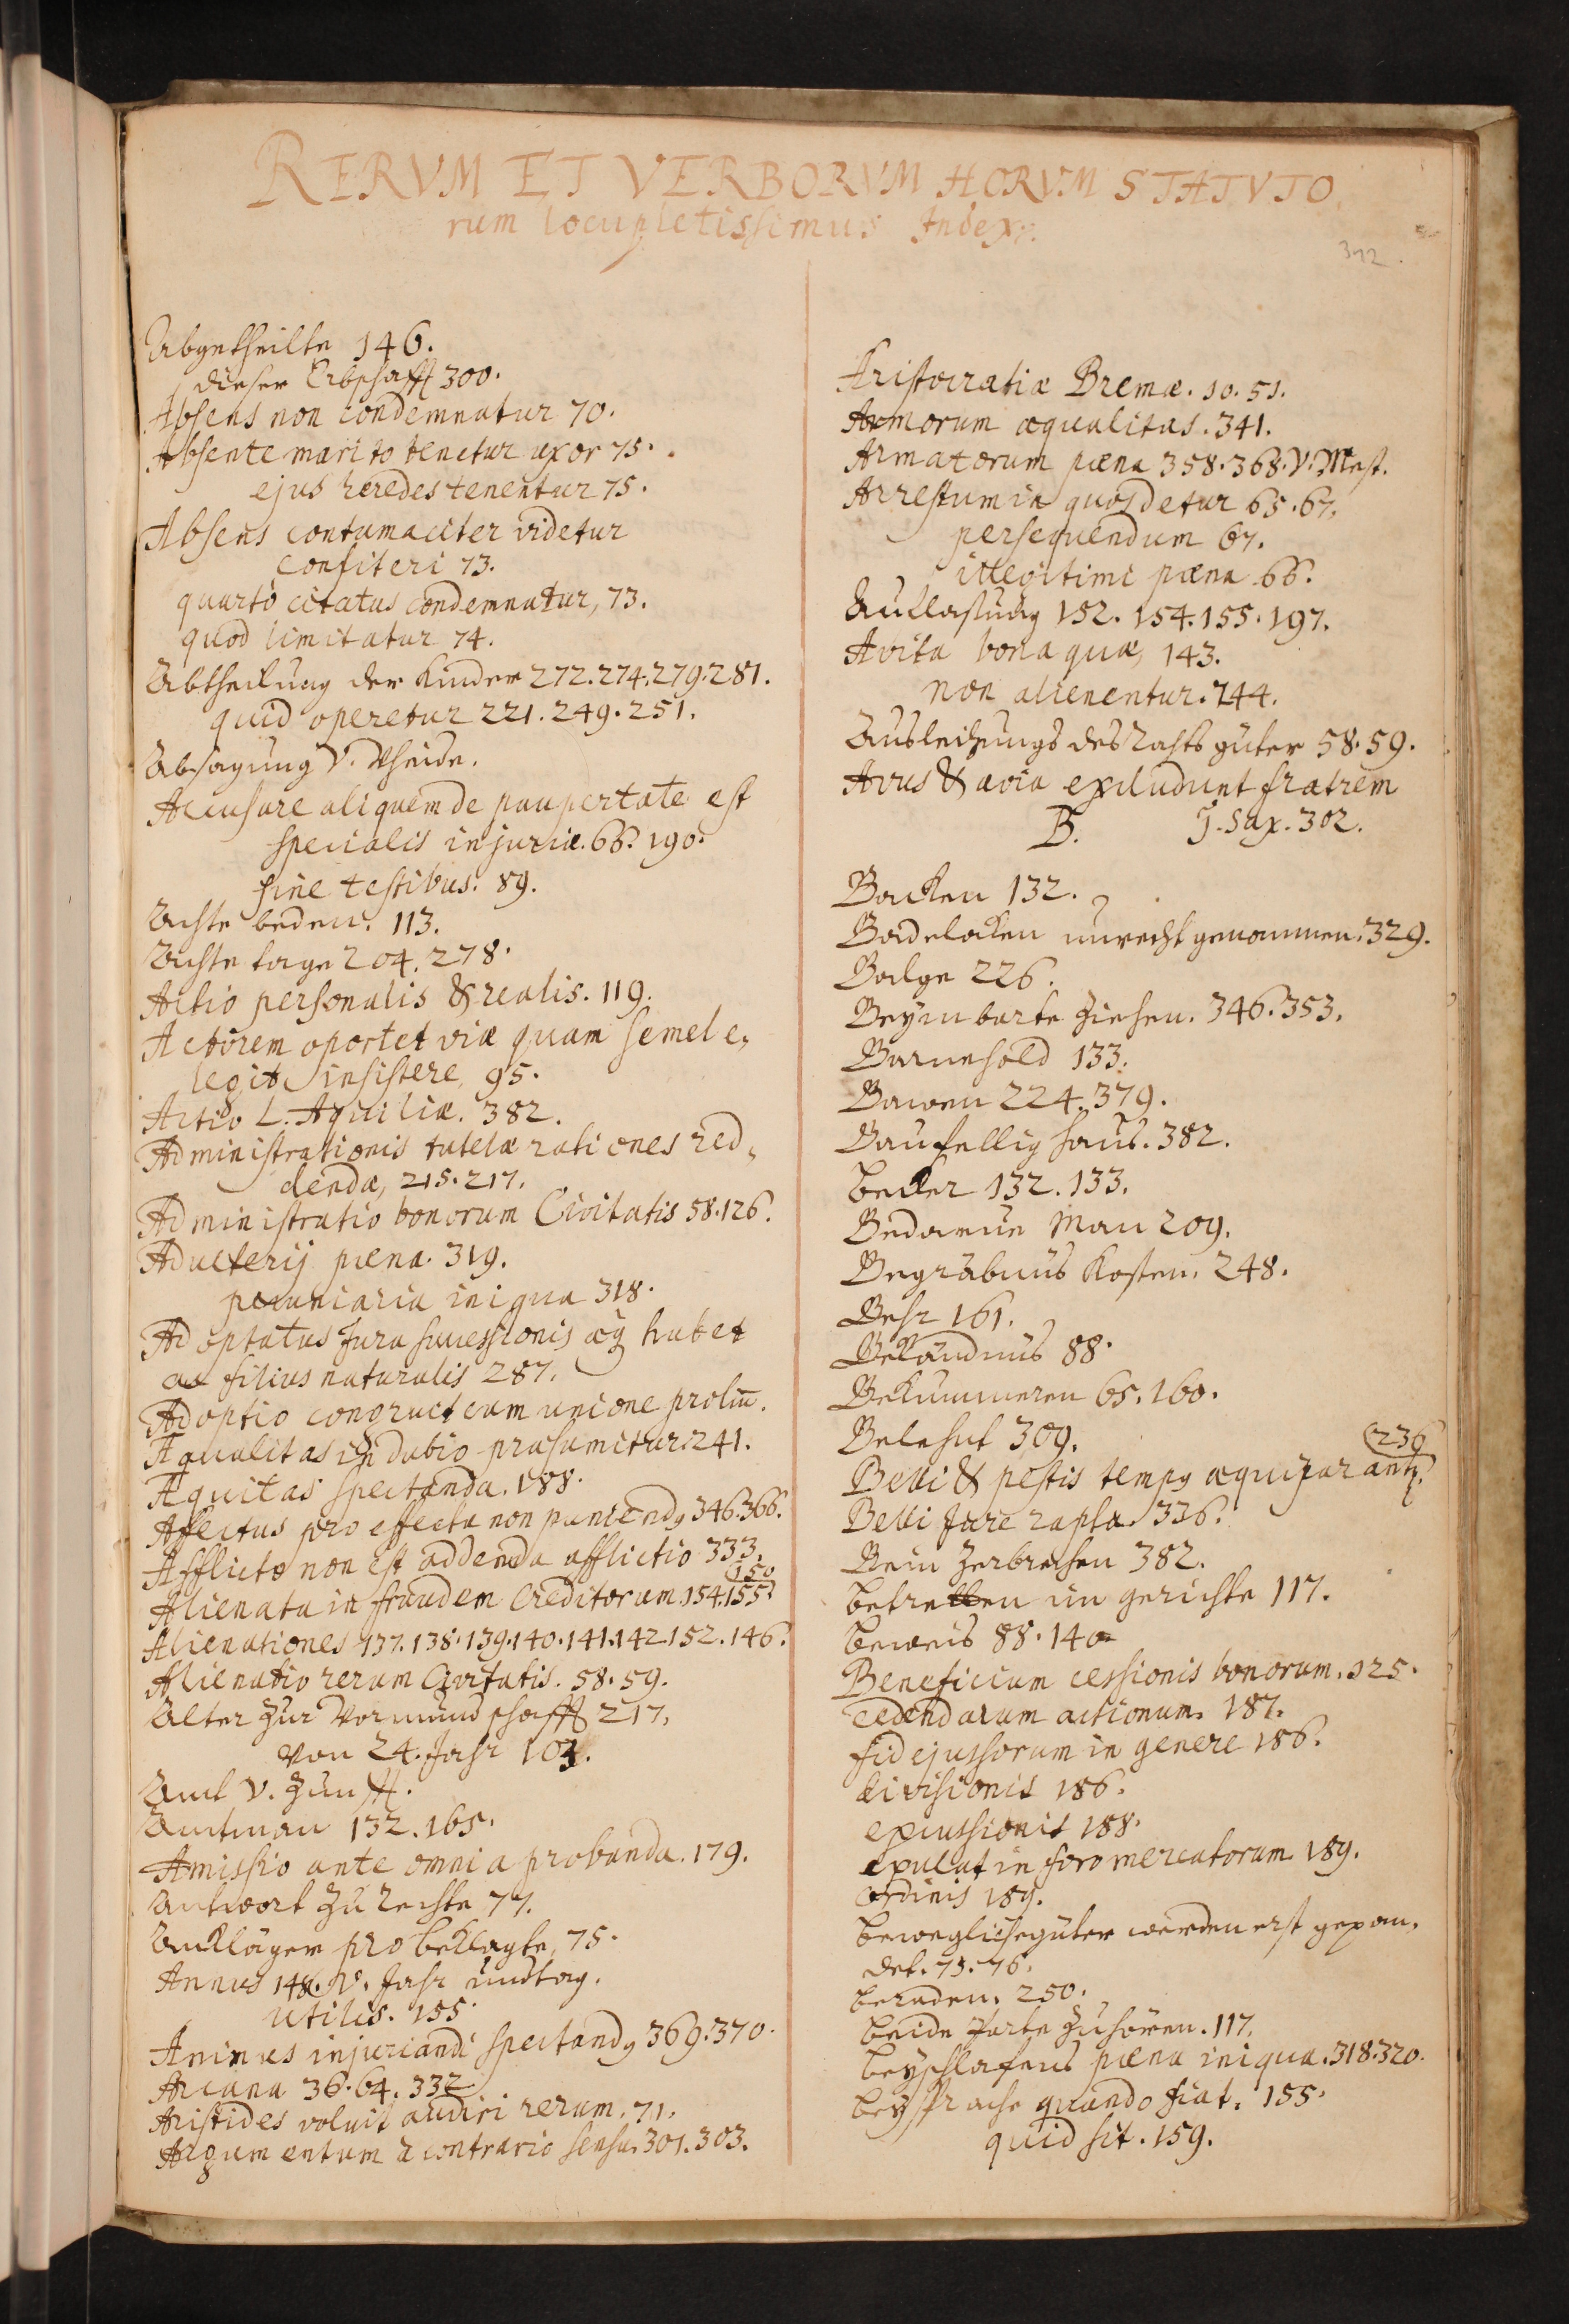 RERVM ET VERBORVM HORVM STATVTO
rum locupletissimus Index.
392.
Abgetheilte 146.
dieser Erbschafft 300.
Absens non condemnatur 70.
Absente marito tenetur uxor 75.
ejus heredes tenentur 75.
Absens contumaciter videtur
confiteri 73.
quartò citatus condemnatur, 73.
quod limitatur 74.
Abtheilung der Kinder 272. 274. 279. 281.
quid operetur 221. 249. 251.
Absagung V. Vheide.
Accusare aliquem de paupertate est
specialis injuriæ. 66. 190.
sine testibus. 89.
Achte beden. 113.
Achte tage 204. 278.
Actio personalis & realis. 119.
Actorem oportet viæ quam semel e,
legit insistere, 95.
Actio L. Aquiliæ. 382.
Administrationis tutelæ rationes red,
dendæ, 215. 217.
Administratio bonorum Civitatis 58. 126.
Adulterij pæna. 319.
pecuniaria iniqua 318.
Adoptatus Jura successionis æq habet
ac filius naturalis 287.
Adoptio congruit cum unione proliū.
Æqualitas in dubio præsumitur. 241.
Æquitas spectanda. 188.
Affectus pro effectu non puniendg 346. 366.
Afflicto non est addenda afflictio 333.
150
Alienata in fraudem Creditorum. 154. 155.
Alienationes 137. 138. 139. 140. 141. 142. 152. 146.
Alienatio rerum Civitatis. 58. 59.
Alter zur Vormundschafft 217.
von 24. Jahr 103.
Amt V. Zunfft.
Amtman 132. 165.
Amissio ante omnia probanda. 179.
Antwort zu rechte 77.
Anklägen pro beklagte, 75.
Annus 148. V. Jahr undtag.
utilis. 155.
Animus injuriandi spectandg 369. 370.
Arcana 36. 64. 332
Aristides voluit audiri rerum. 71.
Argumentum à contrario sensu. 301. 303.
Aristocratiæ Bremæ. 10. 51.
Armorum æqualitas. 341.
Armatorum pæna 358. 368. V. Mest.
Arrestum in quos detur 65. 67.
persequendum 67.
illegitimi pæna 66.
Auflassung 152. 154. 155. 197.
Avita bona quæ, 143.
non alienentur. 144.
Ausleihungs des Rahts güter 58. 59.
Avus & avia excludunt fratrem
B. J. Sax. 302.
Backen 132.
Badelaken unrecht genommen. 329.
Balge 226.
Beym barte ziehen. 346. 353.
Barnehold 133.
Bawen 224. 379.
Baufellig haus. 382.
becker 132. 133.
Bedarve Man 209.
Begräbnus kosten. 248.
Behr 161.
Bekändnus 88.
Bekummeren 65. 160.
Belehnt 309.
236
Belli & pestis tempg æquiparantr.
Belli Jure rapta. 336.
Bein zerbrechen 382.
betretten im gerichte 117.
beweis 88. 140
Beneficium cessionis bonorum. 125.
cedendarum actionum. 187.
fidejussorum in genere 186.
divisionis 186.
excussionis 188.
expulat in foro mercatorum 189.
ordinis 189.
beweglichegüter werden erst gepan,
det. 75. 76.
beraden. 250.
beide Parte zuhören. 117.
beyschlafens pæna iniqua. 318. 320.
beysprache quando fiat. 155.
quid sit. 159.